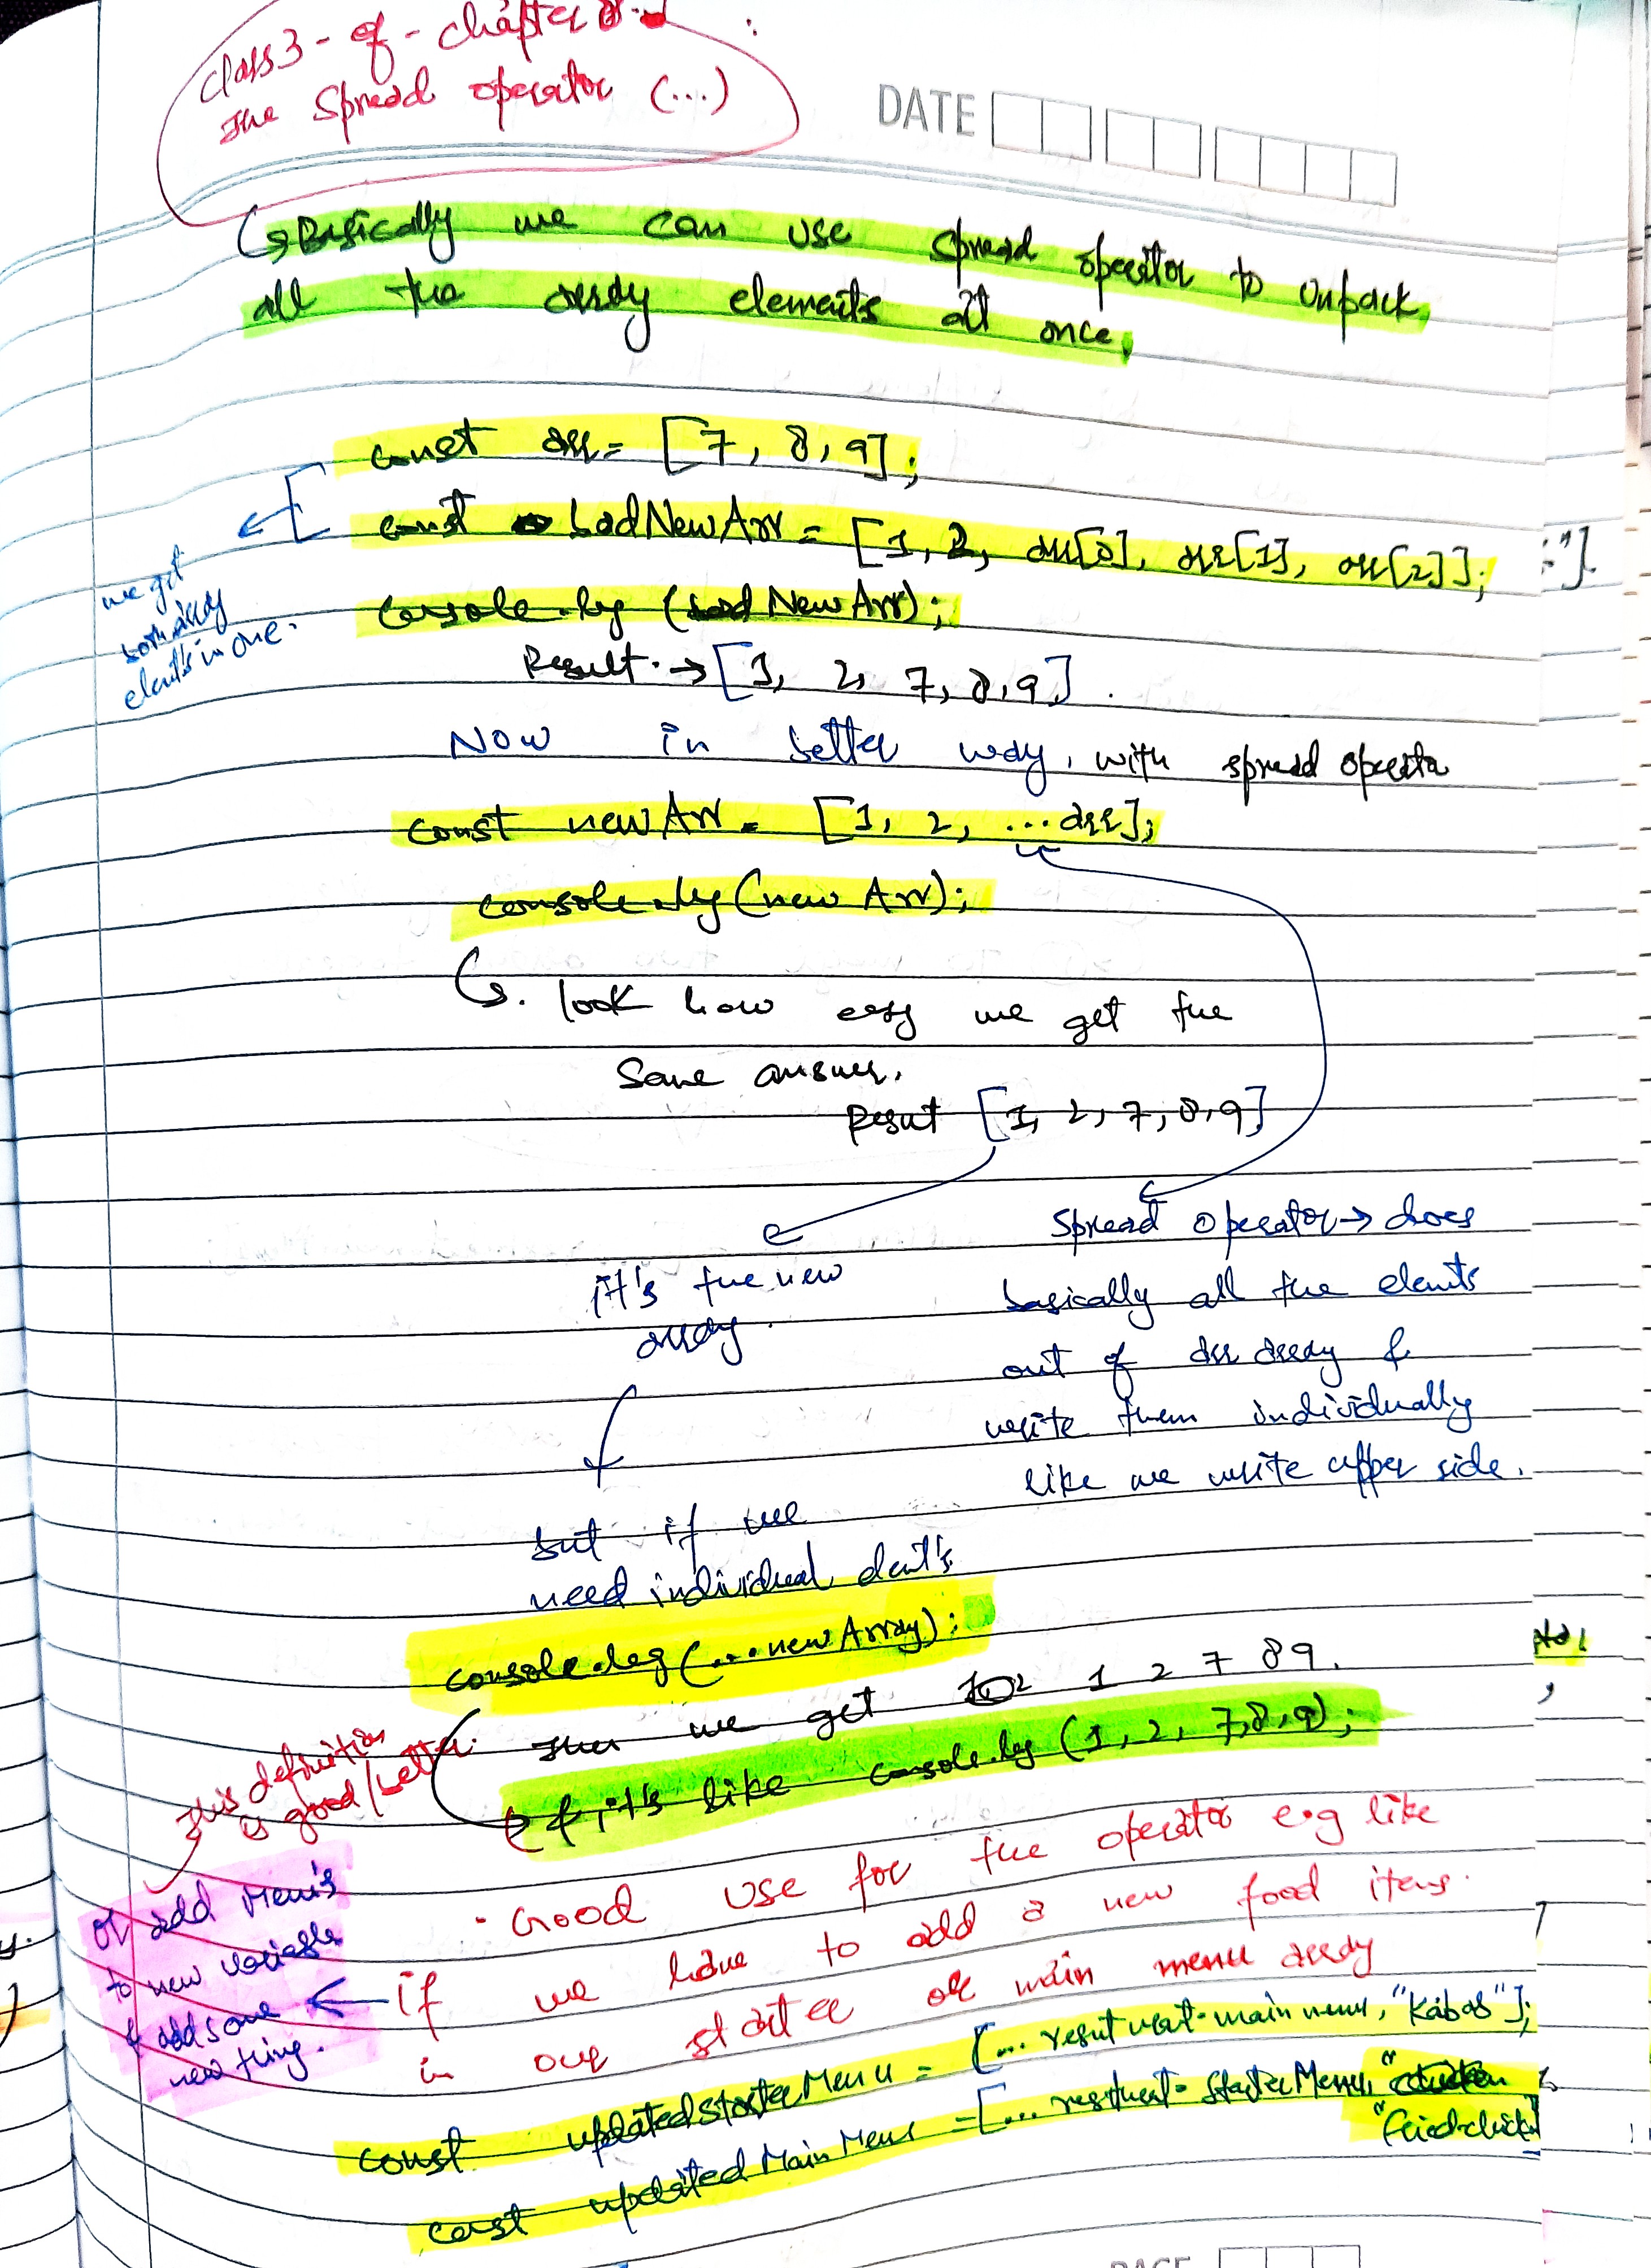 class 3 - of - chapter
The Spread operator (...)
DATE
↳ Basically we can use spread operator to unpack
all the array elements at once,
const arr = [7, 8, 9];
const badNewArr = [1, 2, arr[0], arr[1], arr[2]];
console.log (badNewArr);
we get
both array
elemt's in one.
Result. → [1, 2, 7, 8, 9].
Now in better way, with spread operato
const newArr = [1, 2, ...arr];
console.log (new Arr);
↳. look how easy we get the
same answer.
Result [1, 2, 7, 8, 9]
it's the new
array.
Spread operator → does
basically all the elemts
out of arr array &
write them individually
like we write upper side.
but if we
need individual elemt's
console.log (...newArray);
Then we get 1 2 7 8 9.
& it's like console.log (1, 2, 7, 8, 9);
This definition
is good/better.
or add Menu's
to new variable
& add some
new thing.
• Good use for the operator e.g like
if we have to add a new food items.
in our starter or main menu array
const updatedstarterMenu = [... resturant.main menu, "Kabab"];
const updated Main Menu = [... resturant. StarterMenu,